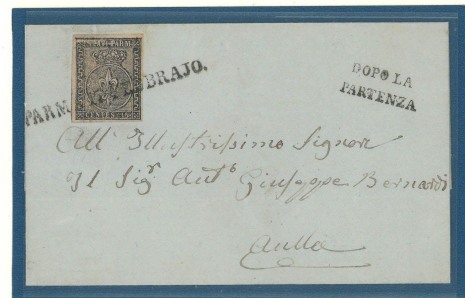 STATI PARM.
CENTES. 15
PARM FEBBRAJO.
DOPO LA
PARTENZA
All' Illustrissimo Signor
Il Sigr Giuseppe Bernardi
Aulla